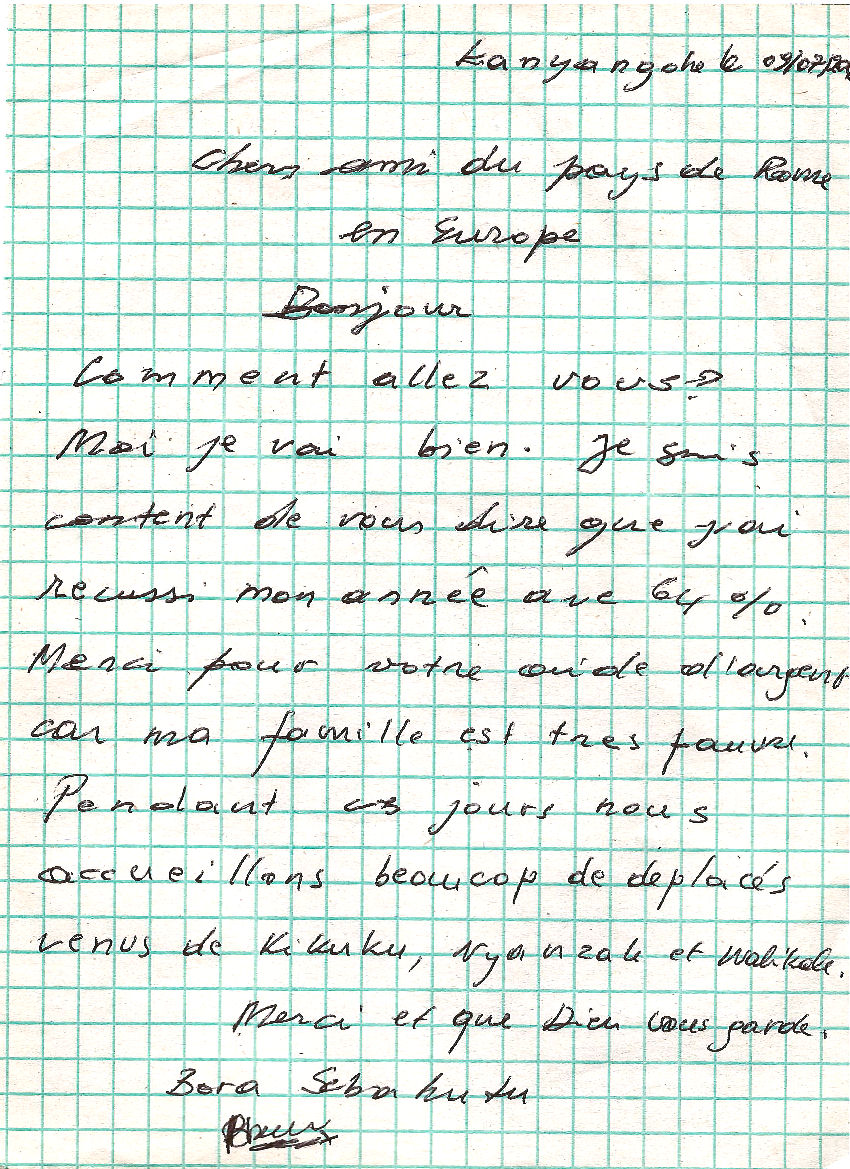 Kanyangohe le 09/07/20
Chers ami du pays de Rome
en Europe
Bonjour
Comment allez vous?
Moi je vai bien. Je suis
content de vous dire que j'ai
recussi mon année ave 64 %.
Merci pour votre aide d'argent
car ma famille est tres pauvre.
Pendant ces jours nous
accueillons beaucop de déplacés
venus de Kikuku, Nyanzale et Walikale.
Merci et que Dieu vous garde.
Bora Sebakutu